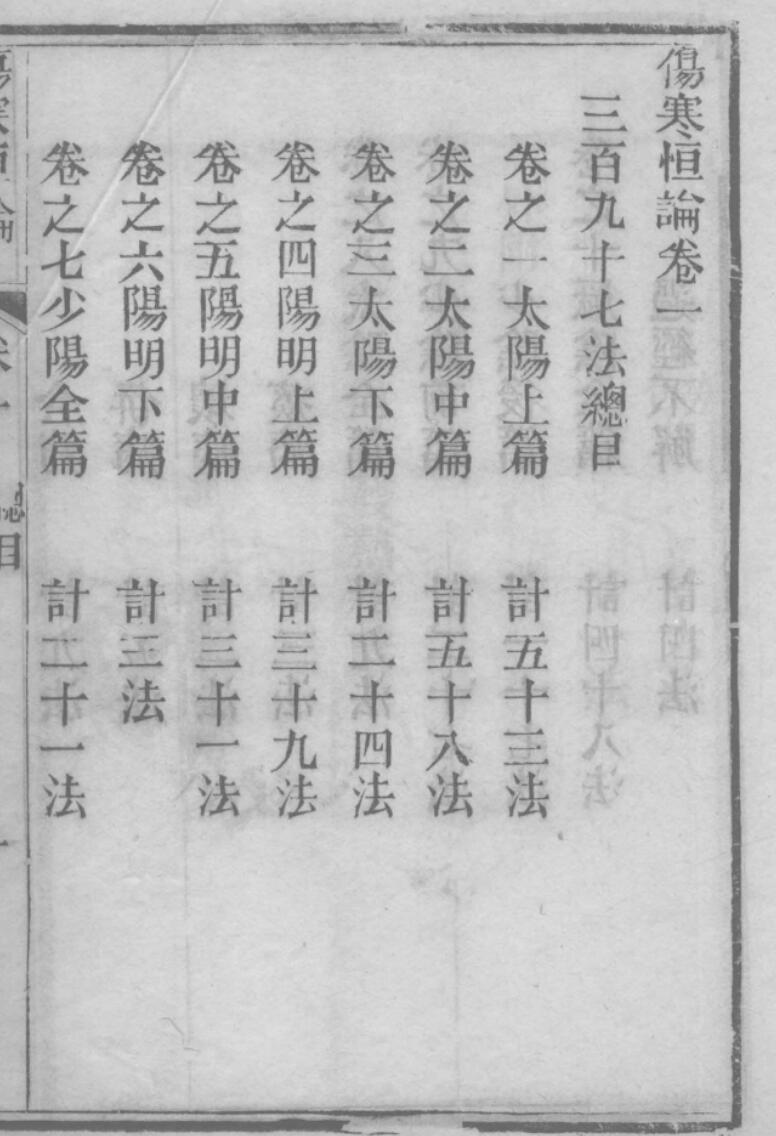 傷寒恒論卷一
三百九十七法總目
卷之一太陽上篇 計五十三法
卷之二太陽中篇 計五十八法
卷之三太陽下篇 計二十四法
卷之四陽明上篇 計三十九法
卷之五陽明中篇 計三十一法
卷之六陽明下篇 計三法
卷之七少陽全篇 計二十一法